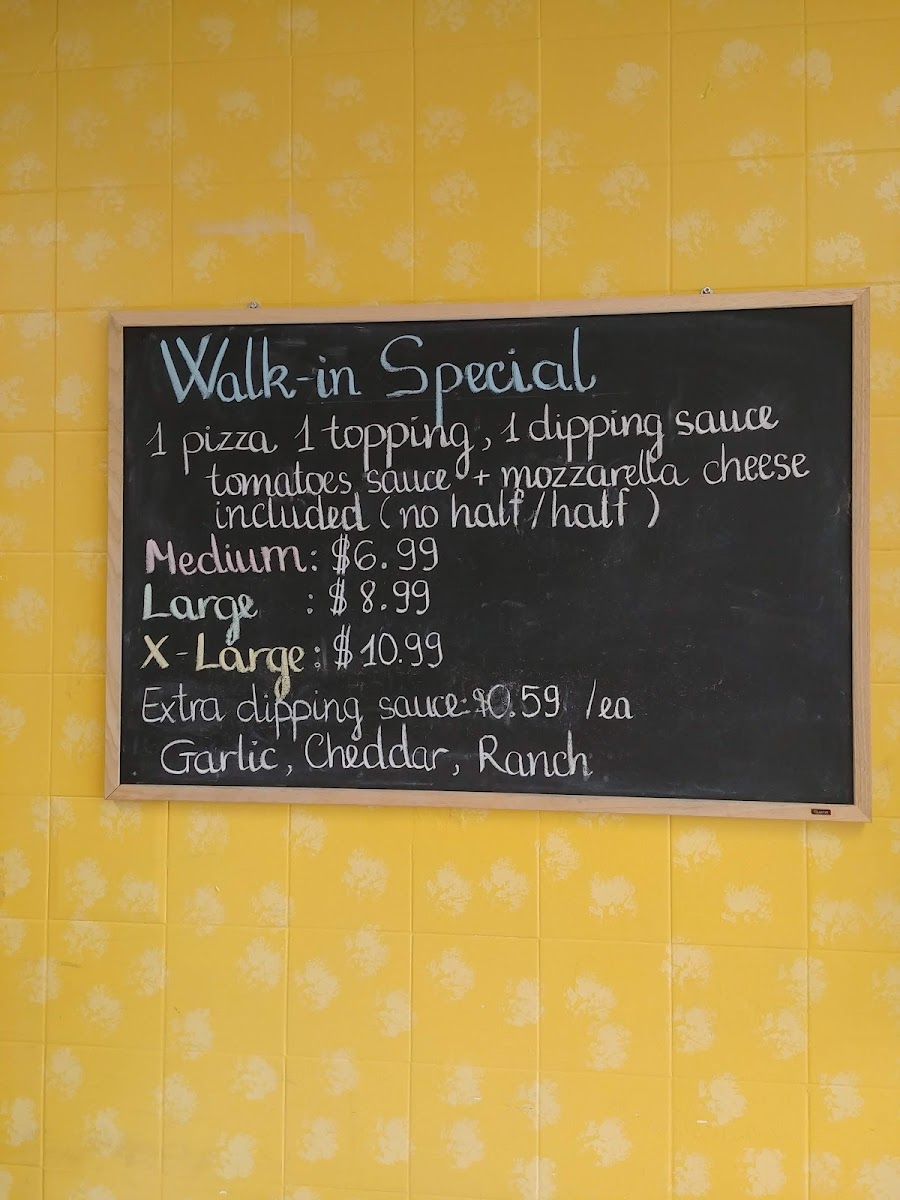 Walk-in Special
1 pizza 1 topping, 1 dipping sauce
tomatoes sauce + mozzarella cheese
included (no half/half)
Medium: $6.99
Large : $8.99
X-Large: $10.99
Extra dipping sauce: $0.59 /ea
Garlic, Cheddar, Ranch